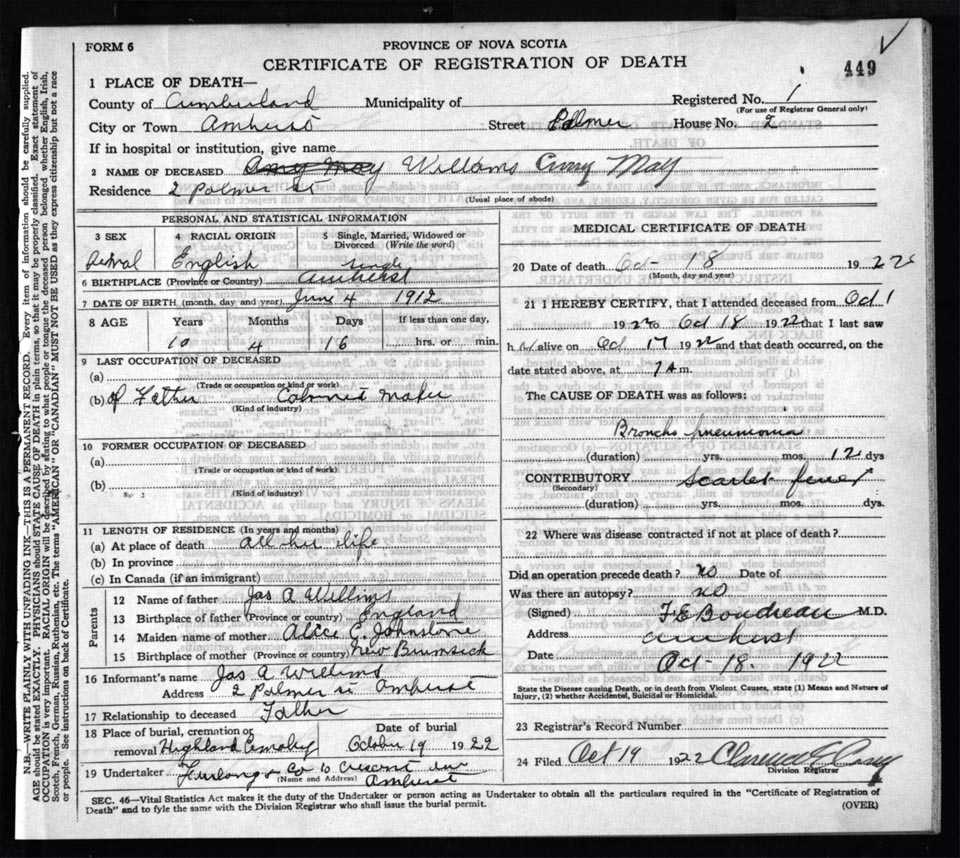 FORM 6
PROVINCE OF NOVA SCOTIA
CERTIFICATE OF REGISTRATION OF DEATH
449
1 PLACE OF DEATH—
County of Cumberland Municipality of Registered No. 1
(For use of Registrar General only)
City or Town Amherst Street Palmer House No. 2
If in hospital or institution, give name
2 NAME OF DECEASED Amy May Williams Amy May
Residence 2 Palmer St
(Usual place of abode)
PERSONAL AND STATISTICAL INFORMATION
3 SEX
4 RACIAL ORIGIN English
5 Single, Married, Widowed or Divorced (Write the word) Single
6 BIRTHPLACE (Province or Country) Amherst
7 DATE OF BIRTH (month, day and year) June 4 1912
8 AGE Years Months Days If less than one day,
10 4 16 hrs. or min.
9 LAST OCCUPATION OF DECEASED
(a)
(Trade or occupation or kind or work)
(b) of Father maker
(Kind of industry)
10 FORMER OCCUPATION OF DECEASED
(a)
(Trade or occupation or kind or work)
(b)
(Kind of industry)
11 LENGTH OF RESIDENCE (In years and months)
(a) At place of death all her life
(b) In province
(c) In Canada (if an immigrant)
Parents
12 Name of father Jas A Williams
13 Birthplace of father (Province or country) England
14 Maiden name of mother Alice E Johnstone
15 Birthplace of mother (Province or country) New Brunsick
16 Informant's name Jas A Williams
Address 2 Palmer St Amherst
17 Relationship to deceased Father
18 Place of burial, cremation or removal Highland Date of burial October 19 1922
19 Undertaker Furlong & Co 10 Crescent Ave
(Name and Address) Amherst
MEDICAL CERTIFICATE OF DEATH
20 Date of death Oct- 18 1922
(Month, day and year)
21 I HEREBY CERTIFY, that I attended deceased from Oct 1
1922 to Oct 18 1922 that I last saw
alive on Oct 17 1922 and that death occurred, on the
date stated above, at 7 A m.
The CAUSE OF DEATH was as follows:
Broncho pneumonia
(duration) yrs. mos. 12 dys
CONTRIBUTORY Scarlet fever
(Secondary)
(duration) yrs. mos. dys.
22 Where was disease contracted if not at place of death?
Did an operation precede death? no Date of
Was there an autopsy? no
(Signed) F E Boudreau M.D.
Address Amherst
Date Oct-18. 1922
State the Disease causing Death, or in death from Violent Causes, state (1) Means and Nature of
Injury, (2) whether Accidental, Suicidal or Homicidal.
23 Registrar's Record Number
24 Filed Oct 19 1922 Clarence
Division Registrar
SEC. 46—Vital Statistics Act makes it the duty of the Undertaker or person acting as Undertaker to obtain all the particulars required in the "Certificate of Registration of
Death" and to fyle the same with the Division Registrar who shall issue the burial permit.
(OVER)
N.B.—WRITE PLAINLY WITH UNFADING INK—THIS IS A PERMANENT RECORD. Every item of information should be carefully supplied.
AGE should be stated EXACTLY. PHYSICIANS should STATE CAUSE OF DEATH in plain terms, so that it may be properly classified. Exact statement of
OCCUPATION is very important. RACIAL ORIGIN will be described by stating to what people or tongue the deceased person belonged, whether English, Irish,
Scotch, French, German, Russian, Ruthenian, etc. The terms "AMERICAN" OR "CANADIAN" MUST NOT BE USED as they express citizenship but not a race
or people. See instructions on back of Certificate.